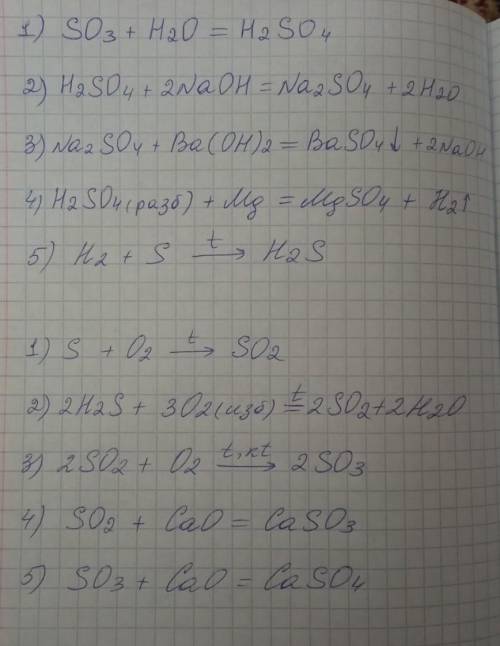 1) SO₃ + H₂O = H₂SO₄
2) H₂SO₄ + 2NaOH = Na₂SO₄ + 2H₂O
3) Na₂SO₄ + Ba(OH)₂ = BaSO₄↓ + 2NaOH
4) H₂SO₄(разб) + Mg = MgSO₄ + H₂↑
5) H₂ + S —t→ H₂S
1) S + O₂ —t→ SO₂
2) 2H₂S + 3O₂(изб) =t= 2SO₂ + 2H₂O
3) 2SO₂ + O₂ —t, кt→ 2SO₃
4) SO₂ + CaO = CaSO₃
5) SO₃ + CaO = CaSO₄